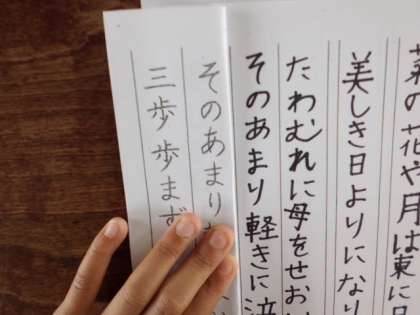 菜の花や月は東に日
美しき日よりになり
たわむれに母をせおい
そのあまり軽きに泣
そのあまり
三歩歩まず